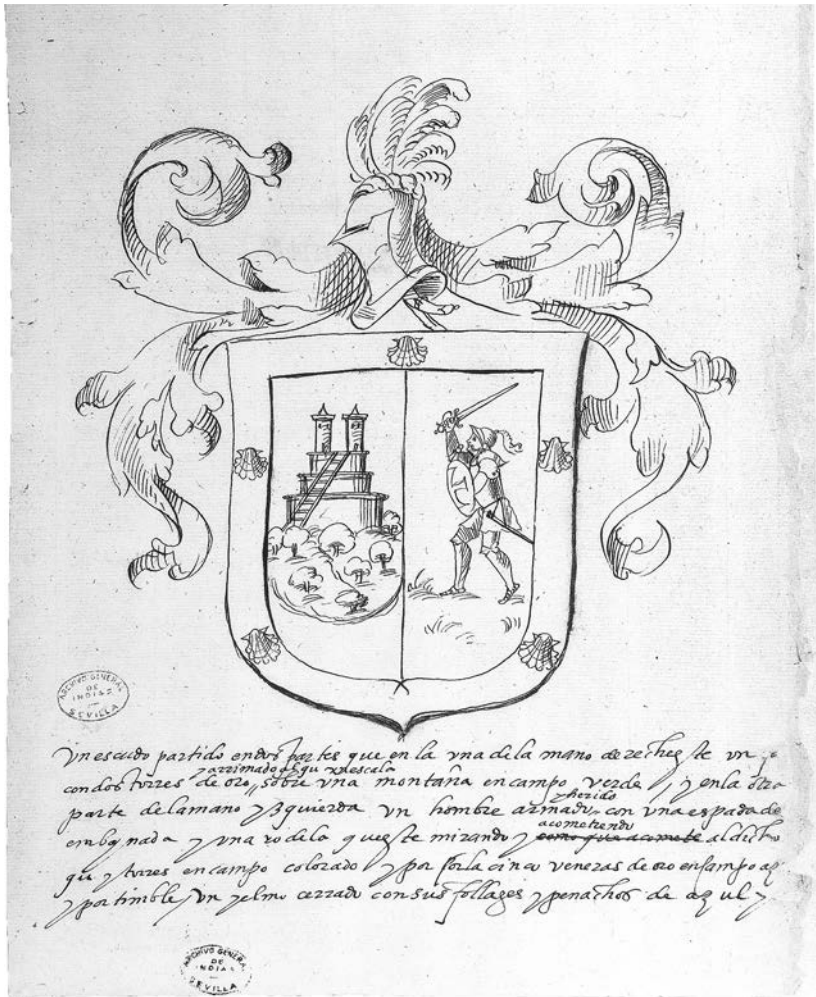 ARCHIVO GENERAL
DE
INDIAS
SEVILLA
Vn escudo partido en dos partes que en la vna de la mano derecha este un
y arrimado al qu vna escala
con dos torres de oro, sobre vna montaña en campo verde, y en la otra
y herido
parte de la mano yzquierda vn hombre armado con vna espada de
acometiendo
embaynada y vna rodela que este mirando y como que acomete al dicho
qu y torres en campo colorado y por orla cinco veneras de oro en campo az
y por timble vn yelmo cerrado con sus follages y penachos de azul y
ARCHIVO GENERAL
DE
INDIAS
SEVILLA